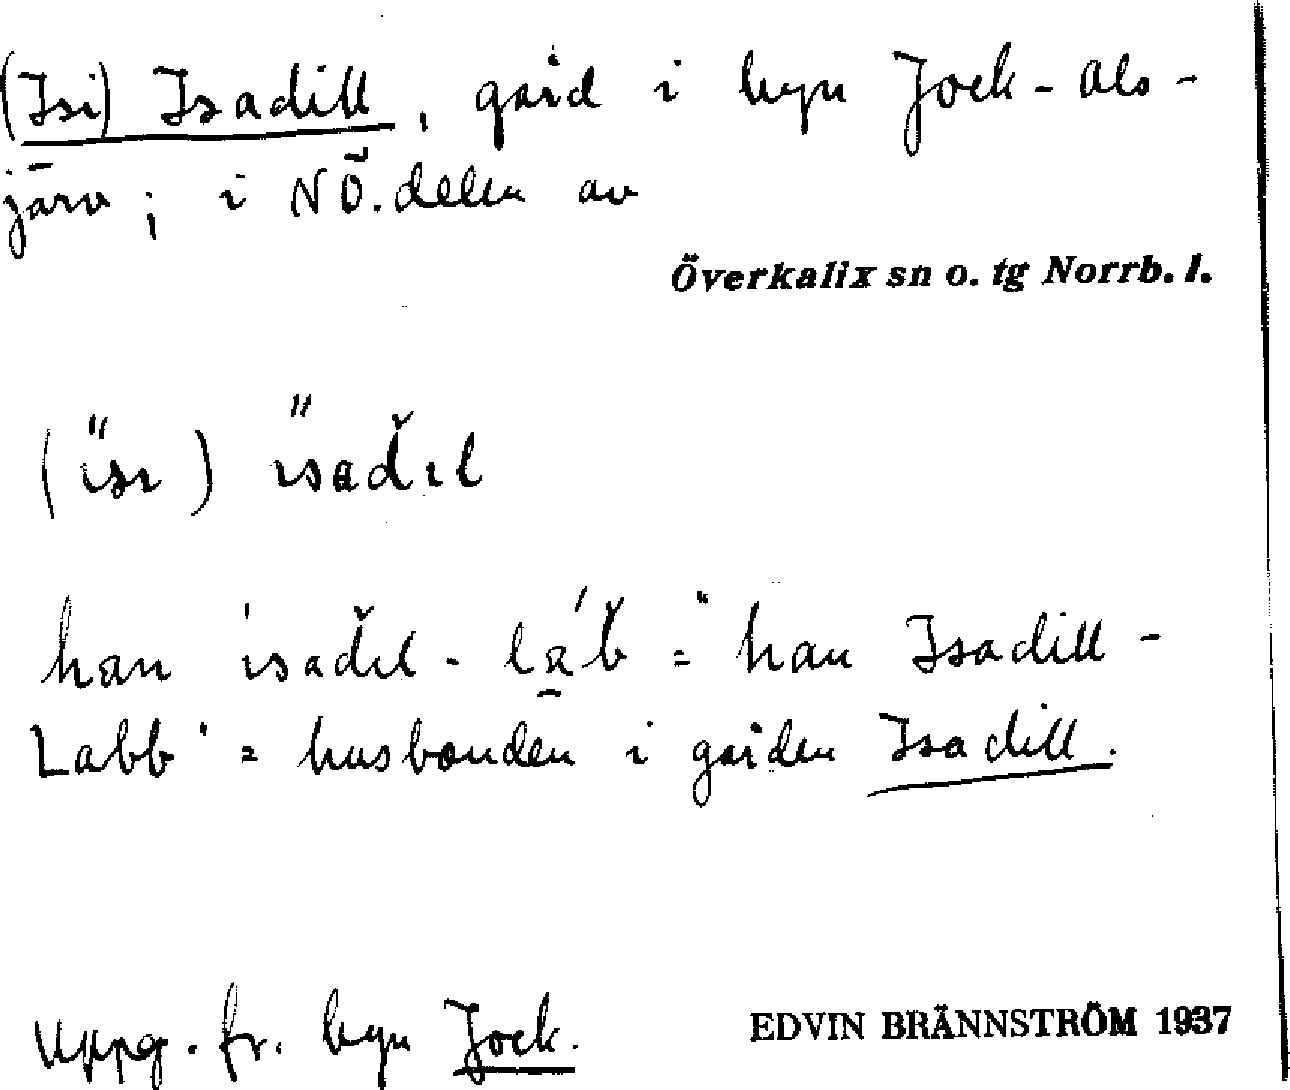 (Isi) Isadill, gård i byn Jock-Als-
järv; i NÖ.delen av
Överkalix sn o. tg Norrb. l.
(ısı) ısadıl
han ısadıl-lab = "han Isadill-
Labb" = husbonden i gården Isadill.
Uppg. fr. byn Jock.
EDVIN BRÄNNSTRÖM 1937